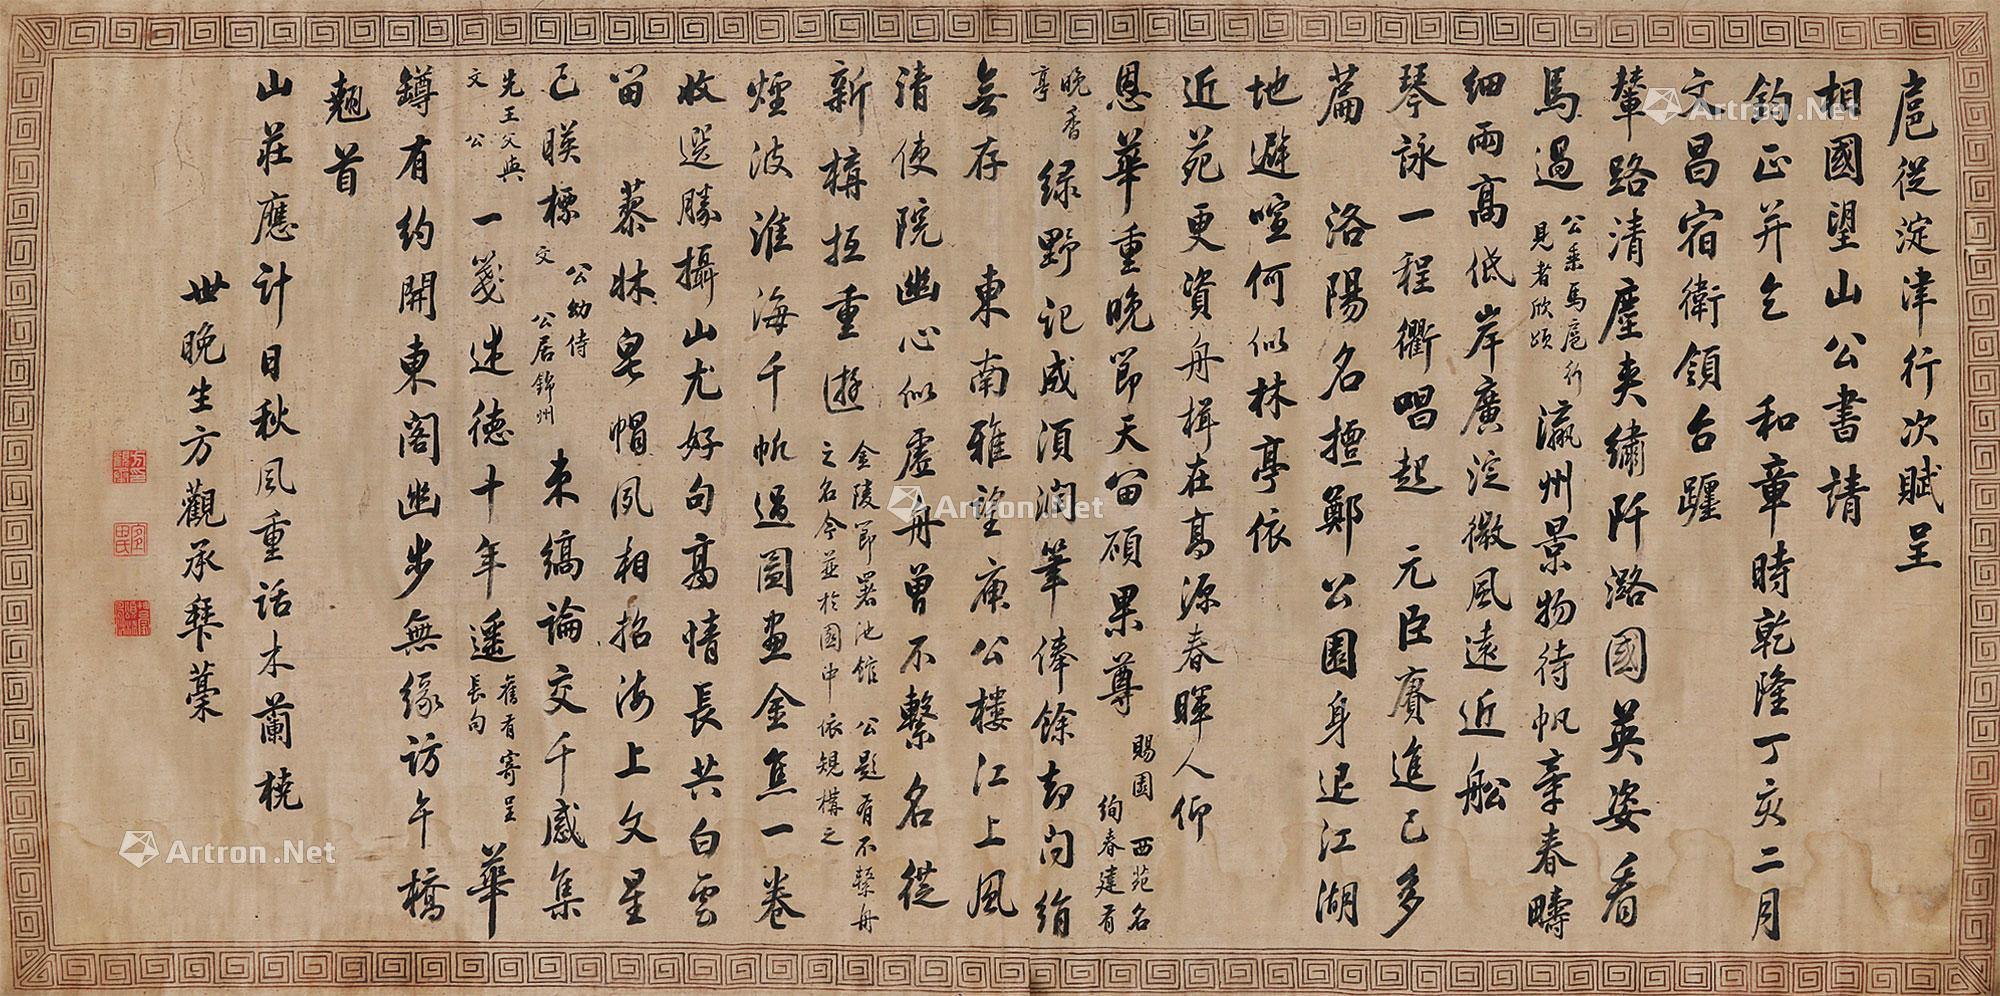 扈從淀津行次賦呈
相國望山公書請
鈞正并乞 和章時乾隆丁亥二月
文昌宿衛領台躔
輦路清塵夾繡阡潞國英姿看
馬過公乘馬扈行見者欣頌瀛州景物待帆牽春疇
細雨高低岸廣淀微風遠近船
琴詠一程衢唱起 元臣賡進已多
篇 洛陽名擅鄭公園身退江湖
地避喧何似林亭依
近苑更資舟楫在高源春暉人仰
恩華重晚節天留碩果尊賜園西苑名絢春建有
晚香亭綠野記成須潤筆俸餘却問絹
無存 東南雅望庾公樓江上風
清使院幽心似虛舟曾不繫名從
新構拒重遊金陵節署池館公題有不繫舟之名今並於園中依規構之
煙波淮海千帆過圖畫金焦一卷
收選勝攝山尤好句高情長共白雲
留 藜牀皂帽夙相招海上文星
已映標公幼侍文公居錦州束縞論交千感集
先王父與文公一箋述德十年遙舊有寄呈長句華
鐏有約開東閣幽步無緣訪午橋
翹首
山莊應計日秋風重話木蘭橈
世晚生方觀承拜藁
Artron.Net
Artron.Net
Artron.Net
Artron.Net